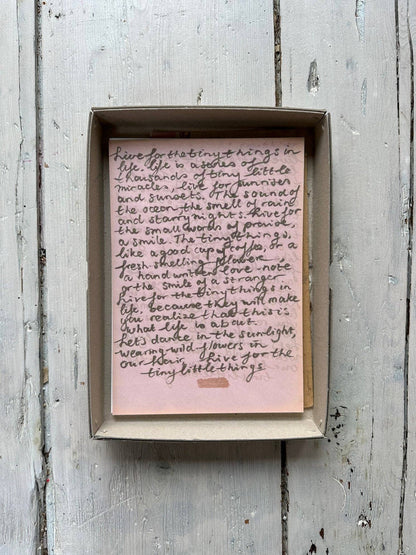 Live for the tiny things in
life. life is a series of
thousands of tiny little
miracles, live for sunrises
and sunsets. The sound of
the ocean, the smell of rain
and starry nights. Live for
the small words of praise,
a smile. The tiny things,
like a good cup of coffee, or a
fresh smelling flower
a hand written love note
or the smile of a stranger
Live for the tiny things in
life, because they will make
you realize that this is
what life is about.
Let's dance in the sunlight,
wearing wild flowers in
our hair. Live for the
tiny little things